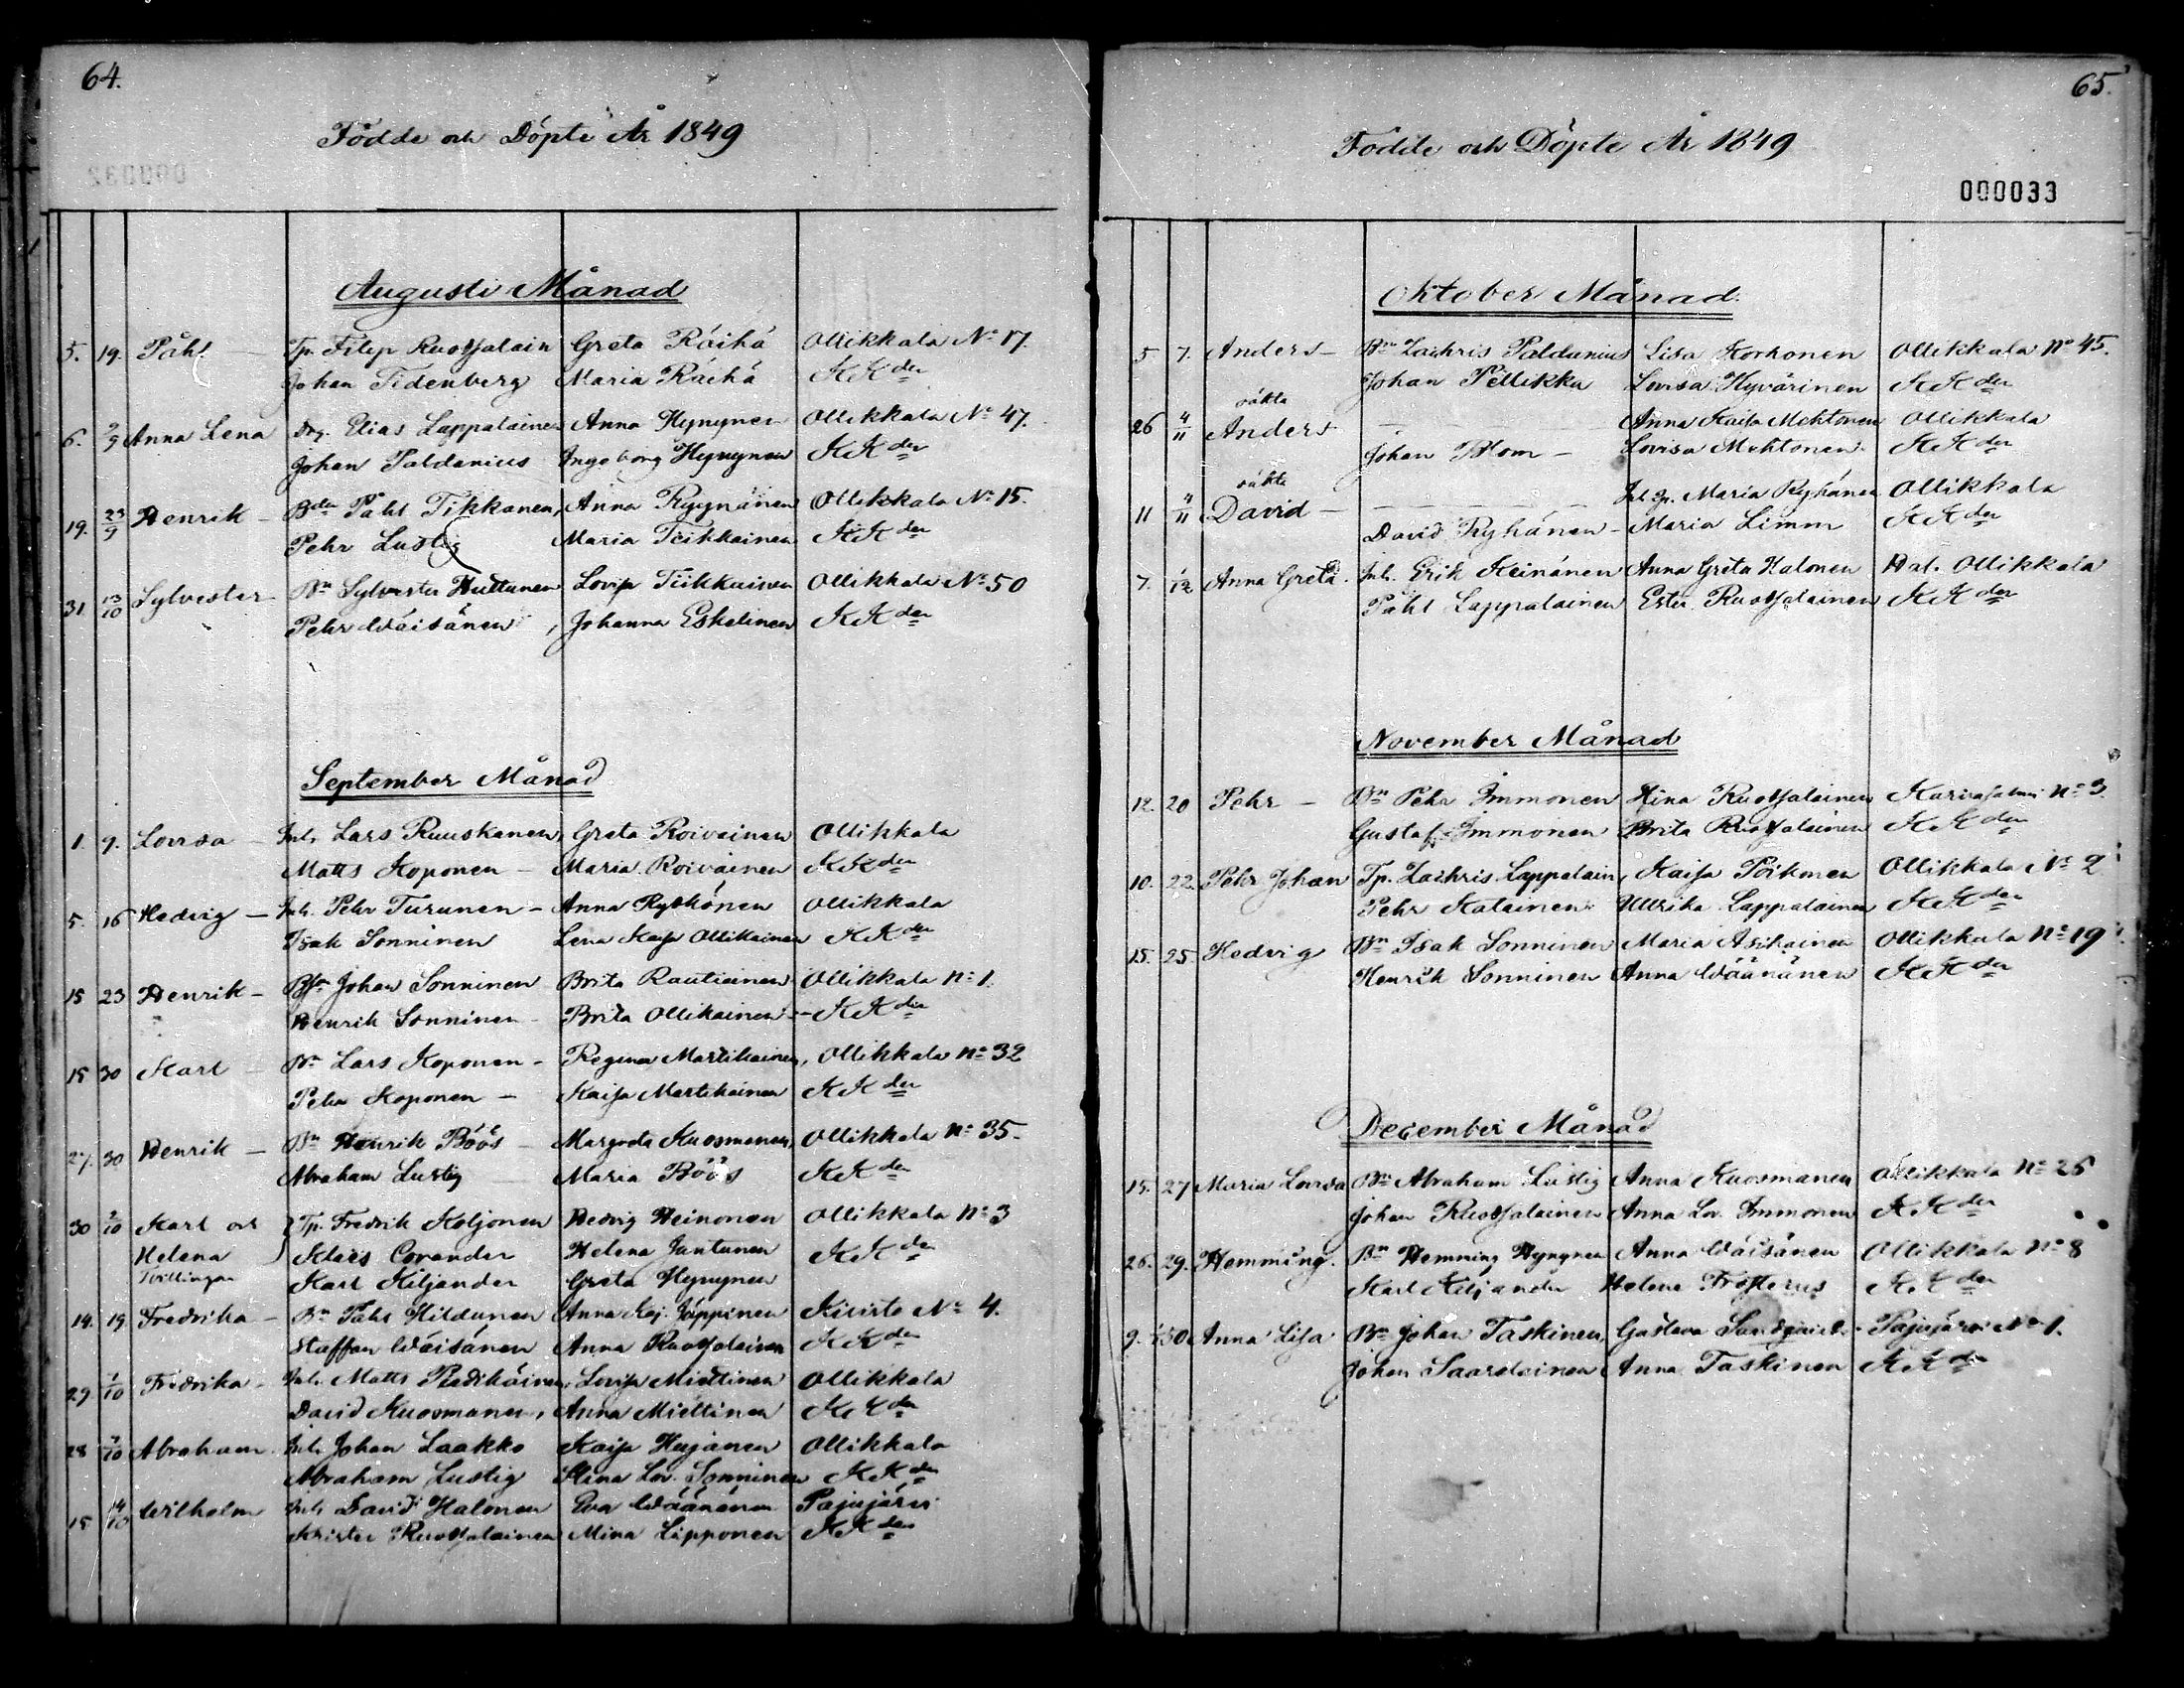 64.
Födde och Döpte År 1849
Augusti Månad
5. 19. Påhl Tp. Filip Ruotsalain Greta Räihä Ollikkala No 17.
Johan Tidenberg Maria Räihä KKder
6. 2/9 Anna Lena Drg. Elias Lappalainen Anna Hynynen Ollikkala No 47.
Johan Paldanius Ingeborg Hynynen KKder
19. 23/9 Henrik - Bdn Påhl Tikkanen, Anna Ryynänen Ollikkala No 15.
Pehr Lustig Maria Tiikkainen KKder
31 13/10 Sylvester Bn Sylvester Huttunen Lovisa Tiikkainen Ollikkala No 50
Pehr Wäisänen, Johanna Eskelinen KKder
September Månad
1. 9. Lovisa - Inh. Lars Ruuskanen, Greta Roivainen Ollikkala
Matts Koponen - Maria Roivainen KKder
5. 16 Hedvig - Inh. Pehr Turunen - Anna Rytkönen Ollikkala
Isak Sonninen Lena Kaisa Ollikainen KKder
15 23 Henrik - Bsn Johan Sonninen Brita Rautiainen Ollikkala No 1.
Henrik Sonninen - Brita Ollikainen - KKder
15 30 Karl - Bn Lars Koponen - Regina Martikainen, Ollikkala No 32
Pehr Koponen - Kaisa Martikainen KKder
27. 30 Henrik - Bn Henrik Böös - Margreta Kuosmanen, Ollikkala No 35.
Abraham Lustig - Maria Böös KKder
30 2/10 Karl och Tp. Fredrik Koljonen Hedvig Heinonen Ollikkala No 3
Helena Klaes Corander Helena Jantunen KKder
Tvillingar Karl Kiljander Greta Hynynen
14. 19. Fredrika - Bn Påhl Hildunen Anna Kaj. Jäppinen Kiiriste No 4.
Staffan Wäisänen Anna Ruotsalainen KKder
29 1/10 Fredrika - Inh. Matts Pladikäinen, Lovisa Miettinen Ollikkala
David Kuosmanen, Anna Miettinen KKder
28 7/10 Abraham. Inh. Johan Laakko Kaisa Hujanen Ollikkala
Abraham Lustig Stina Lov. Sonninen KKder
15 14/10 Wilhelm Inh. David Halonen Eva Wäänänen Pajujärvi
Krister Ruotsalainen Mina Lipponen KKder
65.
Födde och Döpte År 1849
000033
Oktober Månad.
5 7. Anders - Bn Zachris Paldanius Lisa Korhonen Ollikkala No 45.
Johan Pellikka Lovisa Hyvärinen KKder
oäkta
26 4/11 Anders - Anna Kaisa Mehtonen Ollikkala
Johan Blom - Lovisa Mehtonen KKder
oäkta
11 4/11 David - Inh. Maria Ryhänen Ollikkala
David Ryhänen - Maria Limm KKder
7. 1/12 Anna Greta. Inh. Erik Keinänen Anna Greta Halonen Hal. Ollikkala
Påhl Lappalainen Ester Ruotsalainen KKder
November Månad
12. 20 Pehr - Bn Pehr Immonen Stina Ruotsalainen Karvasalmi No 3.
Gustaf Immonen Brita Ruotsalainen KKder
10. 22. Pehr Johan Tp. Zachris Lappalain, Kaisa Pöikonen Ollikkala No 2
Pehr Kalainen Ullrika Lappalainen KKder
15. 25. Hedvig Bn Isak Sonninen Maria Asikainen Ollikkala No 19
Henrik Sonninen Anna Wäänänen KKder
December Månad
15. 27 Maria Lovisa Bn Abraham Lustig Anna Kuosmanen Ollikkala No 26
Johan Ruotsalainen Anna Lov. Immonen KKder
26. 29. Hemming. Bn Hemming Hynynen Anna Wäisänen Ollikkala No 8
Karl Kiljander Helena Frosterus KKder
9. 30 Anna Lisa Bn Johan Taskinen Gustava Pajujärvi No 1.
Johan Saarelainen Anna Taskinen KKder